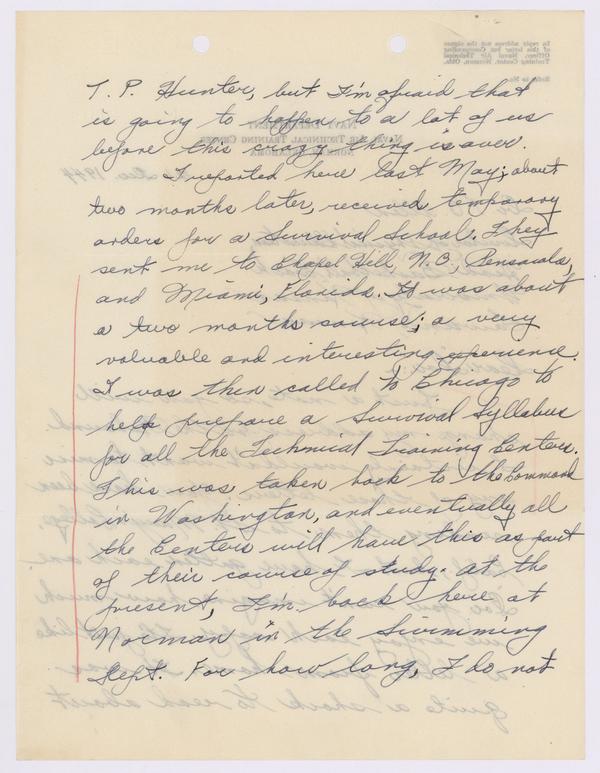 T. P. Hunter, but I'm afraid that
is going to happen to a lot of us
before this crazy thing is over.
I reported here last May; about
two months later, received temporary
orders for a Survival School. They
sent me to Chapel Hill, N.C., Pensacola,
and Miami, Florida. It was about
a two months course; a very
valuable and interesting experience.
I was then called to Chicago to
help prepare a Survival Syllabus
for all the Technical Training Centers.
This was taken back to the Command
in Washington, and eventually all
the Centers will have this as part
of their course of study. At the
present, I'm back here at
Norman in the Swimming
Dept. For how long, I do not